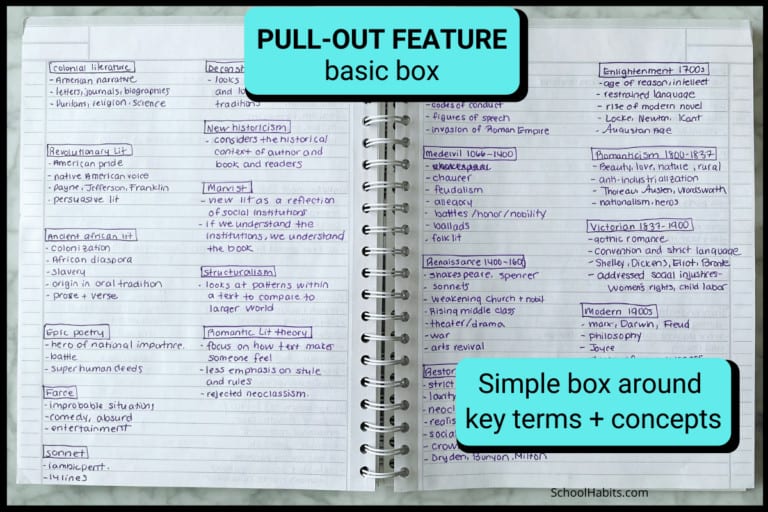 PULL-OUT FEATURE
basic box
Colonial literature
- American narrative
- letters, journals, biographies
- Puritans, religion, science
Revolutionary Lit
- American pride
- native American voice
- Payne, Jefferson, Franklin
- persuasive lit
Ancient african lit
- colonization
- African diaspora
- slavery
- origin in oral tradition
- prose + verse
Epic poetry
- hero of national importnce.
- battle
- super human deeds
Farce
- improbable situations
- comedy, absurd
- entertainment
Sonnet
- iambic pent.
- 14 lines
Deconst
- looks
and
tradition
New historicism
- considers the historical
context of author and
book and readers
Marxist
- view lit as a reflection
of social institutions
- if we understand the
institutions, we understand
the book
Structuralism
- looks at patterns within
a text to compare to
larger world
Romantic Lit theory
- focus on how text makes
someone feel
- less emphasis on style
and rules
- rejected neoclassism.
- codes of conduct
- figures of speech
- invasion of Roman Empire
Medeivil 1066-1400
- chaurer
- feudalism
- allegory
- battles /honor/nobility
- ballads
- folk lit
Renaissance 1400-160
- shakespeare, spencer
- sonnets
- weakening church + nobil
- Rising middle class
- theater/drama
- war
- arts revival
Restor
- strict
- neocl
- realis
- social
- crow
- Dryden, Bunyon, Milton
Enlightenment 1700s
- age of reason, intellect
- restrained language
- rise of modern novel
- Locke, Newton, Kant
- Augustan Age
Romanticism 1800-1837
- Beauty, love, nature, rural
- anti-industrialization
- Thoreau, Austen, Wordsworth
- nationalism, heros
Victorian 1837-1900
- gothic romance
- convention and strict language
- Shelley, Dickens, Eliot, Bronte
- addressed social injustices-
women's rights, child labor
Modern 1900s
- marx, Darwin, Freud
- philosophy
- Joyce
Simple box around
key terms + concepts
SchoolHabits.com